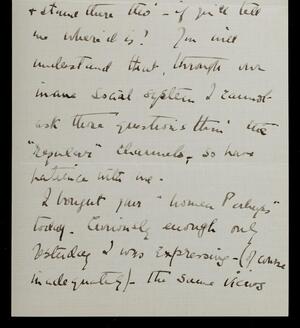 & stand there tho' – if you'll tell
me where it is? You will
understand that, through our
inane social system I cannot
ask those questions thro' the
"regular" channels, so have
patience with me.
I bought your "Women Perhaps"
today. Curiously enough only
yesterday I was expressing – (of course
inadequately) – the same views